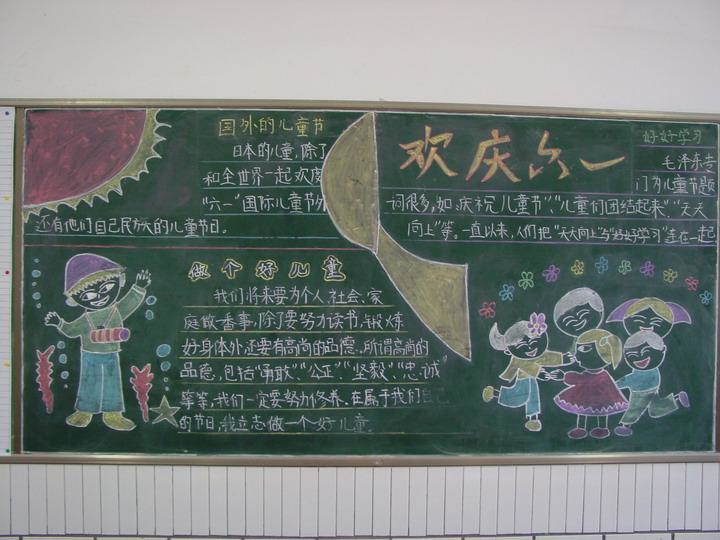 国外的儿童节
日本的儿童，除了
和全世界一起欢度
"六一"国际儿童节外
还有他们自己民族的儿童节日。
做个好儿童
我们将来要为个人、社会、家
庭做番事，除了要努力读书、锻炼
好身体外还要有高尚的品德。所谓高尚的
品德，包括"勇敢"、"公正"、"坚毅"、"忠诚"
等等，我们一定要努力修养。在属于我们自己
的节日，我立志做一个好儿童。
欢庆六一
好好学习
毛泽东专
门为儿童节题
词很多，如"庆祝儿童节"、"儿童们团结起来"、"天天
向上"等。一直以来，人们把"天天向上"与"好好学习"连在一起